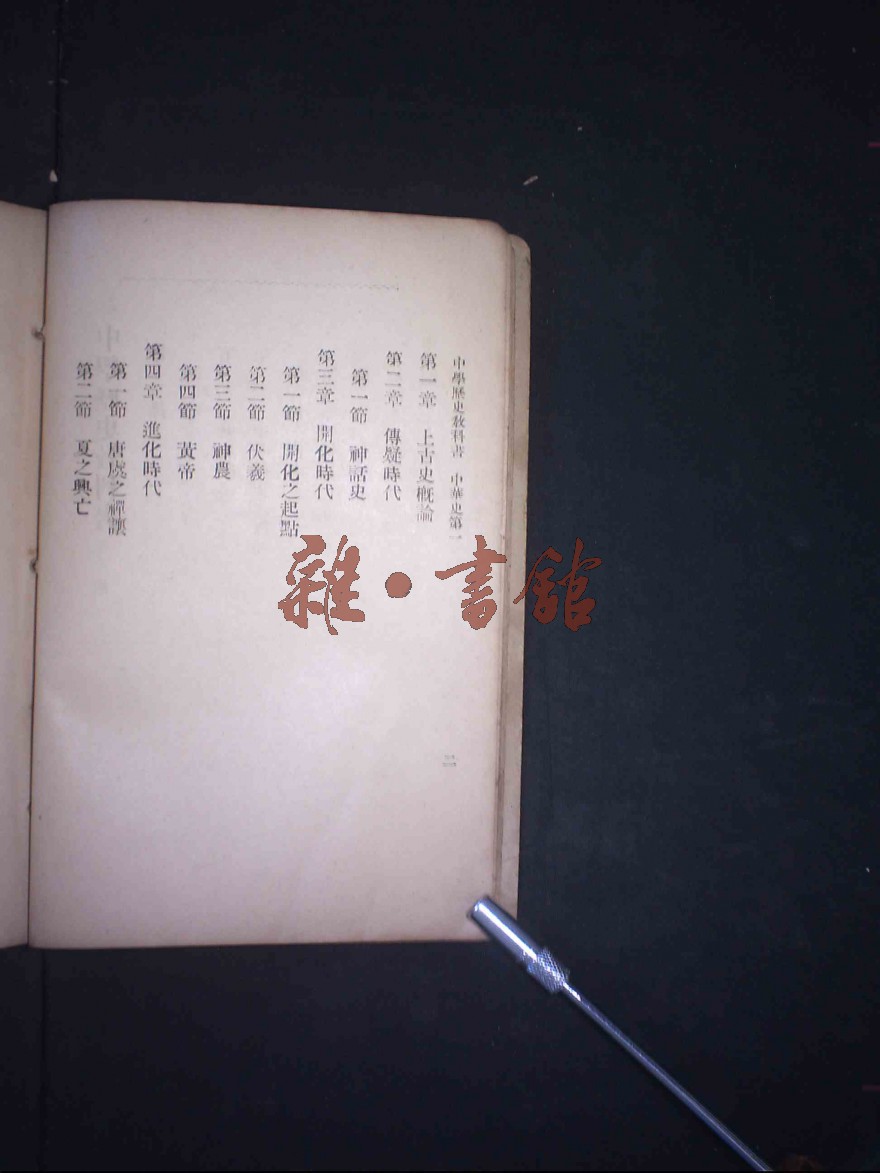 中學歷史教科書　中華史第一
第一章　上古史概論
第二章　傳疑時代
第一節　神話史
第三章　開化時代
第一節　開化之起點
第二節　伏羲
第三節　神農
第四節　黃帝
第四章　進化時代
第一節　唐虞之禪讓
第二節　夏之興亡
雜·書館